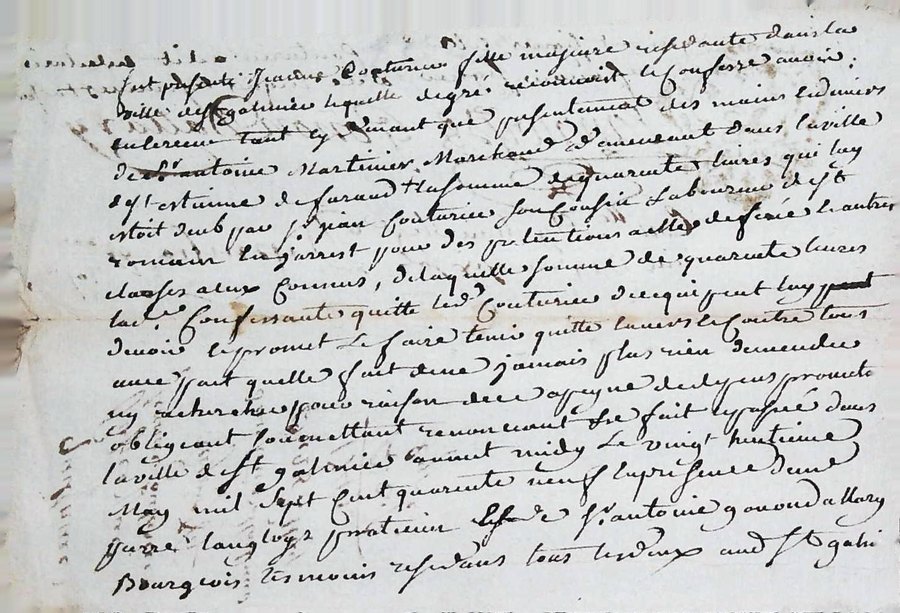 fust presente Jeanne Couturier fille majeure residante dans la
ville de st galmier laquelle de gré reconnoit & confesse avoir
receu tant cy devant que presentement des mains & deniers
de sr antoine Martinier Marchand demeurant dans la ville
de st estienne de furand la somme de quarante livres qui luy
estoit deub par sr jean Couturier son Cousin Laboureur de st
romain en jarrest pour des pretentions a elle deferée & autres
clauses a eux Connus, de laquelle somme de quarante livres
lad. Confessante quitte led. Couturier de ce qui peut luy
devoir & promet Le faire tenir quitte envers & Contre tous
avec pact quelle fait de ne jamais plus rien demender
ny rechercher pour raison de ce a peyne de depens promet
obligeant soumettant renonceant &c fait & passé dans
la ville de st galmier avant midy Le vingt huitieme
May mil sept cent quarante neuf en presence de
pierre langloys praticien & de sr antoine gonond allary
Bourgeois temoins residans tous les deux aud st galm